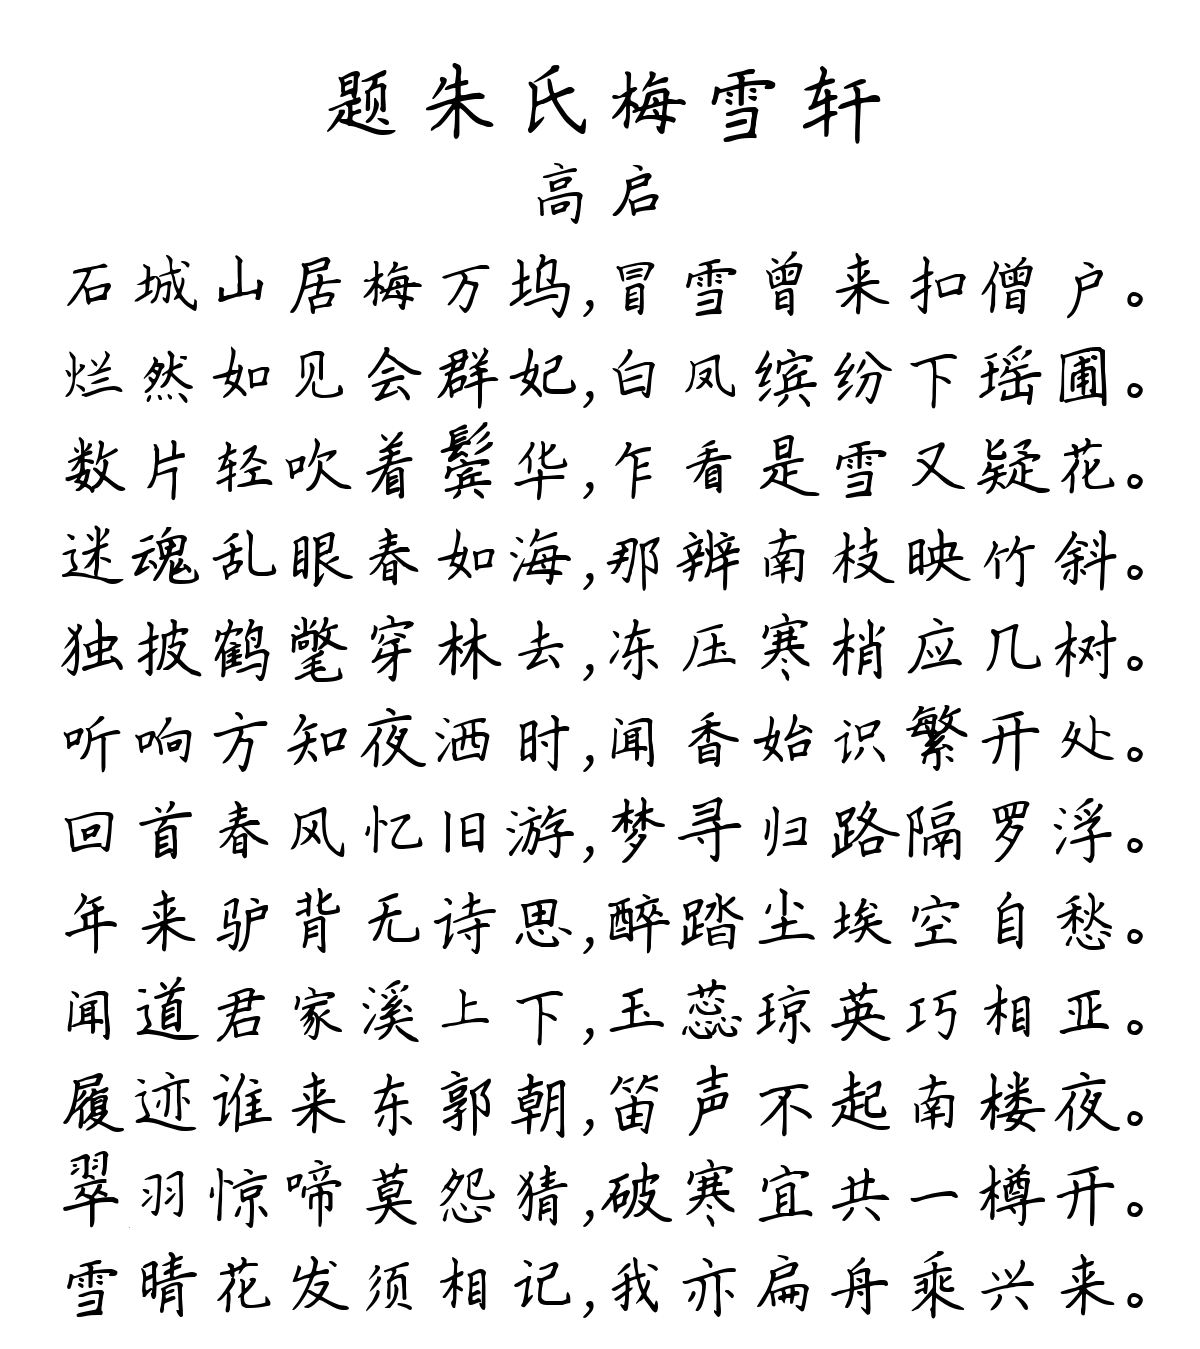 题朱氏梅雪轩
高启
石城山居梅万坞,冒雪曾来扣僧户。
烂然如见会群妃,白凤缤纷下瑶圃。
数片轻吹着鬓华,乍看是雪又疑花。
迷魂乱眼春如海,那辨南枝映竹斜。
独披鹤氅穿林去,冻压寒梢应几树。
听响方知夜洒时,闻香始识繁开处。
回首春风忆旧游,梦寻归路隔罗浮。
年来驴背无诗思,醉踏尘埃空自愁。
闻道君家溪上下,玉蕊琼英巧相亚。
履迹谁来东郭朝,笛声不起南楼夜。
翠羽惊啼莫怨猜,破寒宜共一樽开。
雪晴花发须相记,我亦扁舟乘兴来。